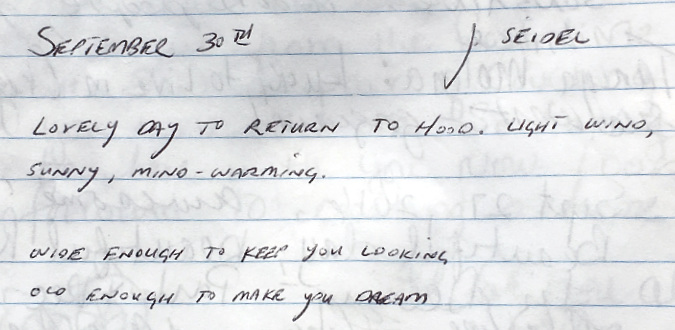 SEPTEMBER 30TH / SEIDEL
LOVELY DAY TO RETURN TO HOOD. LIGHT WIND,
SUNNY, MIND-WARMING.
WIDE ENOUGH TO KEEP YOU LOOKING
OLD ENOUGH TO MAKE YOU DREAM